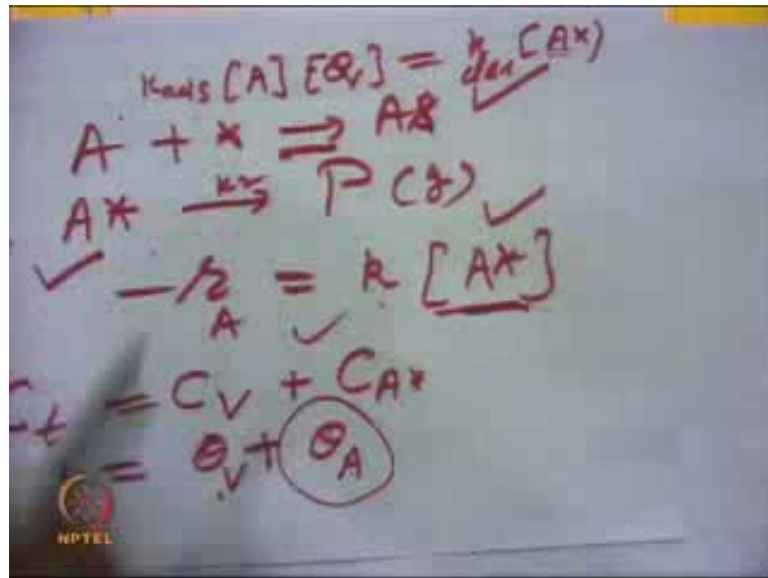 k ads [A] [θv] = k des [A*)
A + * ⇌ A*
A* → P (g)
- r A = k [A*]
C t = C V + C A*
= θ V + θ A
NPTEL